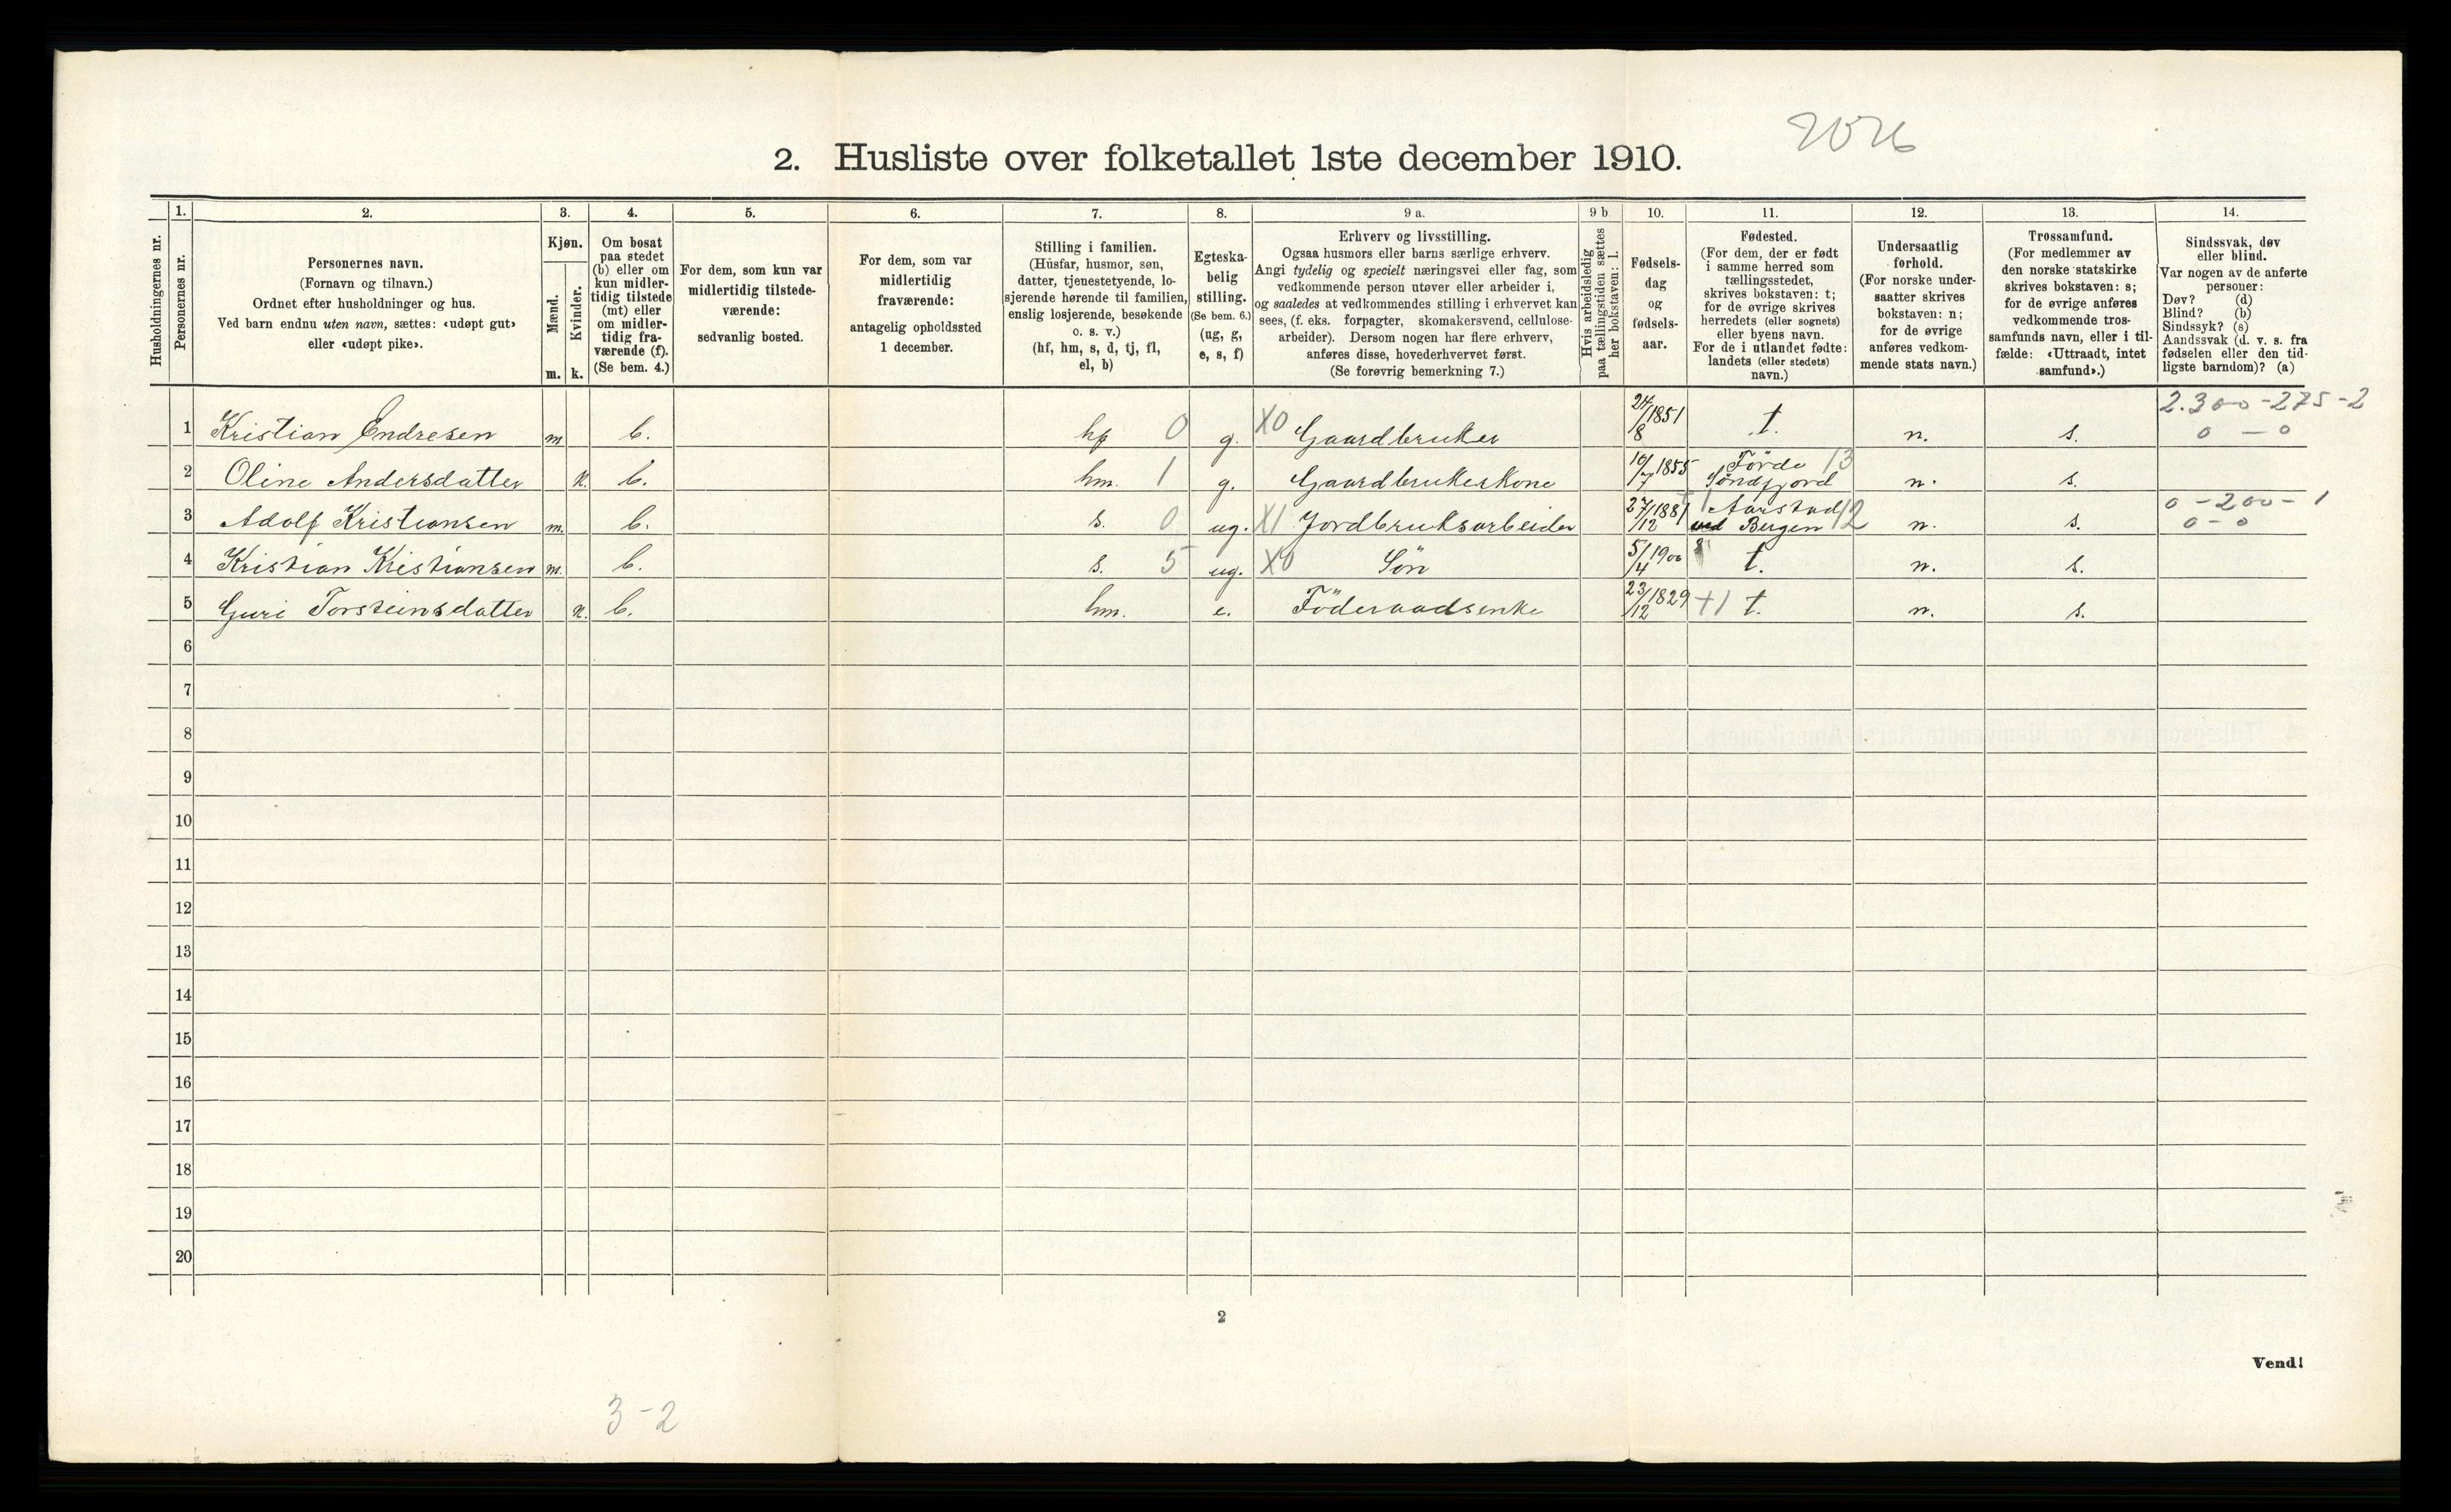 2026
2. Husliste over folketallet 1ste december 1910.
Husholdningernes nr.
1. Personernes nr.
2. Personernes navn. (Fornavn og tilnavn.) Ordnet efter husholdninger og hus. Ved barn endnu uten navn, sættes: «udøpt gut» eller «udøpt pike».
3. Kjøn. Mænd. m. Kvinder. k.
4. Om bosat paa stedet (b) eller om kun midlertidig tilstede (mt) eller om midlertidig fraværende (f). (Se bem. 4.)
5. For dem, som kun var midlertidig tilstedeværende: sedvanlig bosted.
6. For dem, som var midlertidig fraværende: antagelig opholdssted 1 december.
7. Stilling i familien. (Husfar, husmor, søn, datter, tjenestetyende, losjerende hørende til familien, enslig losjerende, besøkende o. s. v.) (hf, hm, s, d, tj, fl, el, b)
8. Egteskabelig stilling. (Se bem. 6.) (ug, g, e, s, f)
9 a. Erhverv og livsstilling. Ogsaa husmors eller barns særlige erhverv. Angi tydelig og specielt næringsvei eller fag, som vedkommende person utøver eller arbeider i, og saaledes at vedkommendes stilling i erhvervet kan sees, (f. eks. forpagter, skomakersvend, cellulosearbeider). Dersom nogen har flere erhverv, anføres disse, hovederhvervet først. (Se forøvrig bemerkning 7.)
9 b. Hvis arbeidsledig paa tællingstiden sættes her bokstaven: l.
10. Fødselsdag og fødselsaar.
11. Fødested. (For dem, der er født i samme herred som tællingsstedet, skrives bokstaven: t; for de øvrige skrives herredets (eller sognets) eller byens navn. For de i utlandet fødte: landets (eller stedets) navn.)
12. Undersaatlig forhold. (For norske undersaatter skrives bokstaven: n; for de øvrige anføres vedkommende stats navn.)
13. Trossamfund. (For medlemmer av den norske statskirke skrives bokstaven: s; for de øvrige anføres vedkommende trossamfunds navn, eller i tilfælde: «Uttraadt, intet samfund».)
14. Sindssvak, døv eller blind. Var nogen av de anførte personer: Døv? (d) Blind? (b) Sindssyk? (s) Aandssvak (d. v. s. fra fødselen eller den tidligste barndom)? (a)
2.300-275-2
1 Kristian Endresen m. b. hf 0 g. X0 Gaardbruker 24/8 1851 t. n. s. 0 - 0
2 Oline Andersdatter k. b. hm. 1 g. Gaardbrukerkone 10/7 1855 Førde Søndfjord 13 n. s.
3 Adolf Kristiansen m. b. s. 0 ug. X1 Jordbruksarbeider 27/12 1881 Aarstad ved Bergen 12 n. s. 0-200-1 0-0
4 Kristian Kristiansen m. b. s. 5 ug. X0 Søn 5/4 1900 t. n. s.
5 Guri Torsteinsdatter k. b. hm. e. Föderaadsenke 23/12 1829 +1 t. n. s.
6
7
8
9
10
11
12
13
14
15
16
17
18
19
20
2
Vend!
3-2